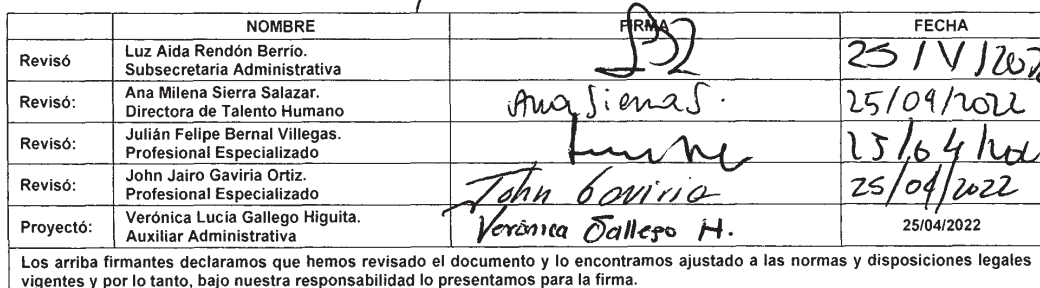 NOMBRE FIRMA FECHA
Revisó Luz Aida Rendón Berrío.
Subsecretaria Administrativa 25/V/202
Revisó: Ana Milena Sierra Salazar.
Directora de Talento Humano Ana Sierra S. 25/04/2022
Revisó: Julián Felipe Bernal Villegas.
Profesional Especializado 25/04/
Revisó: John Jairo Gaviria Ortiz.
Profesional Especializado John Gaviria 25/04/2022
Proyectó: Verónica Lucía Gallego Higuita.
Auxiliar Administrativa Verónica Gallego H. 25/04/2022
Los arriba firmantes declaramos que hemos revisado el documento y lo encontramos ajustado a las normas y disposiciones legales
vigentes y por lo tanto, bajo nuestra responsabilidad lo presentamos para la firma.